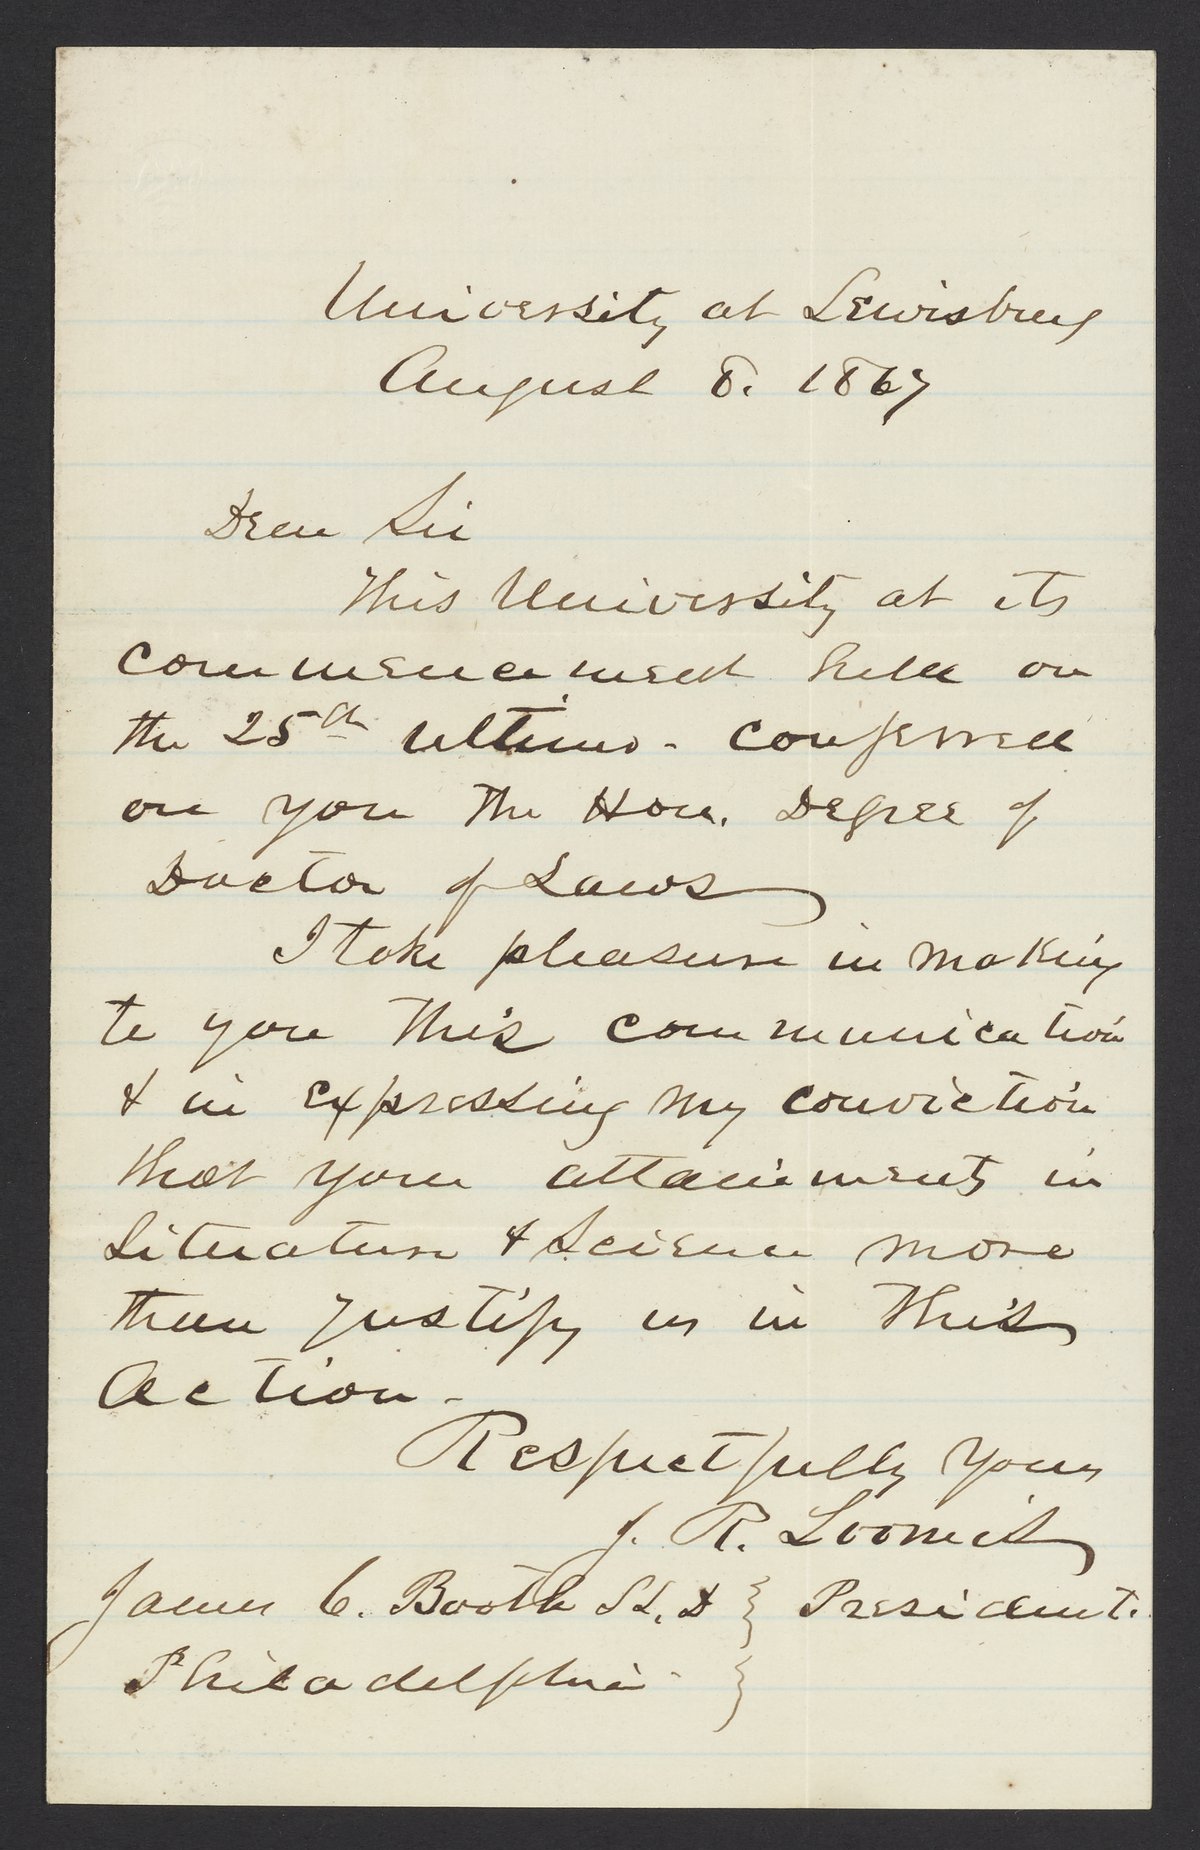 University at Lewisburg
August 8. 1867
Dear Sir
This University at its
commencement held on
the 25th ultimo - conferred
on you the Hon. Degree of
Doctor of Laws
I take pleasure in making
to you this communication
& in expressing my conviction
that your attainments in
Literature & Science more
than justify us in this
Action -
Respectfully Yours
J. R. Loomis
James C. Booth LL. D } President.
Philadelphia }